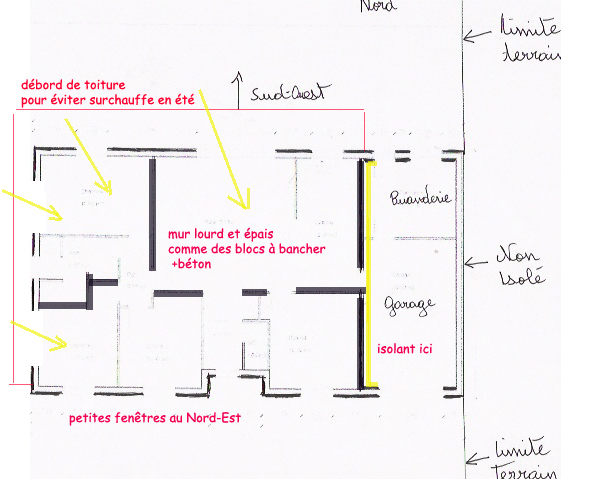 Nord
limite
terrain
débord de toiture
pour éviter surchauffe en été
Sud-Ouest
Buanderie
mur lourd et épais
comme des blocs à bancher
+béton
Non
Isolé
Garage
isolant ici
petites fenêtres au Nord-Est
Limite
Terrain